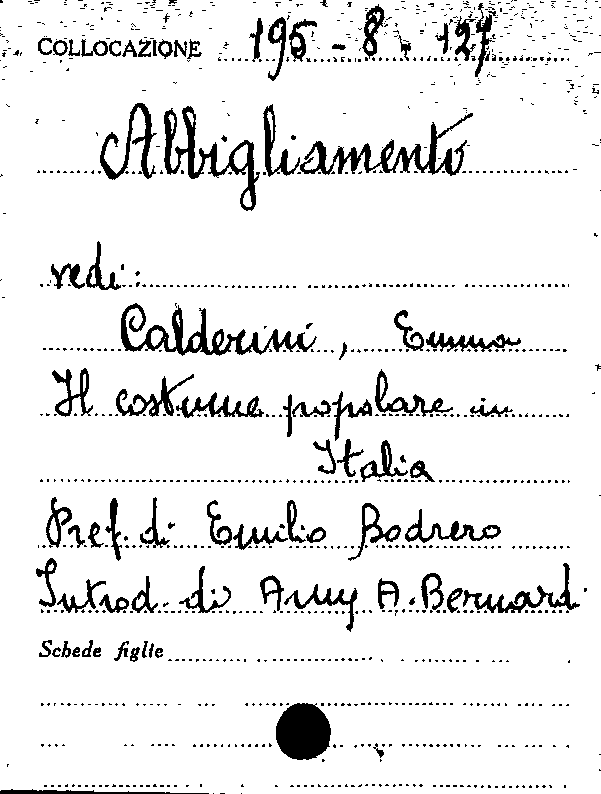 COLLOCAZIONE 195-8.127
Abbigliamento
vedi:
Calderini, Emma
Il costume popolare in
Italia
Pref. di Emilio Bodrero
Introd. di Amy A. Bernardi
Schede figlie